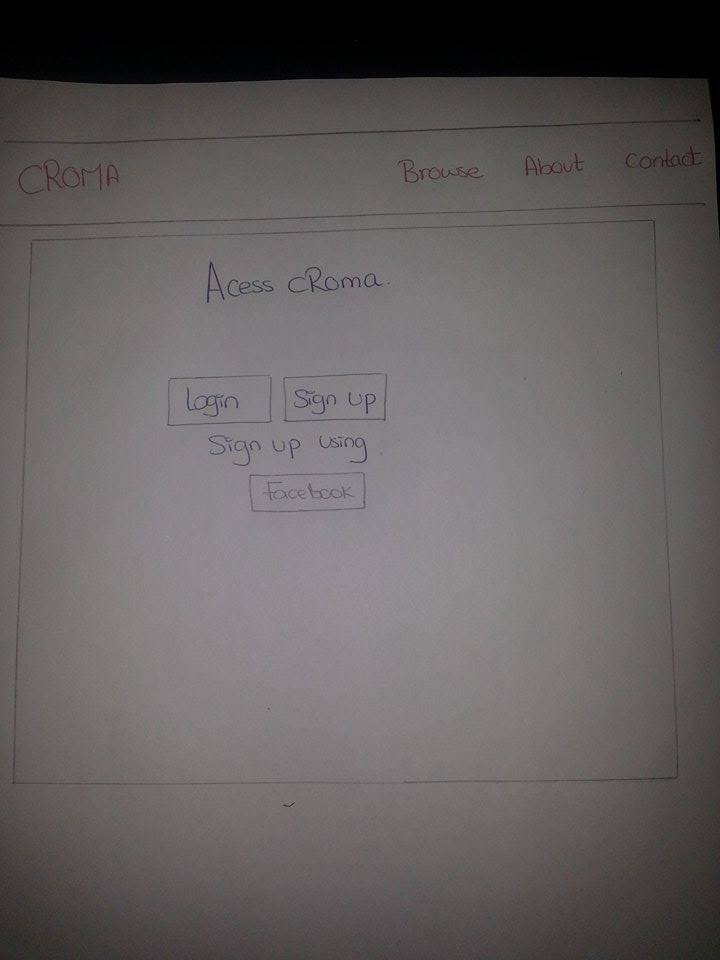 CROMA Browse About Contact
Acess cRoma.
Login Sign up
Sign up using
Facebook